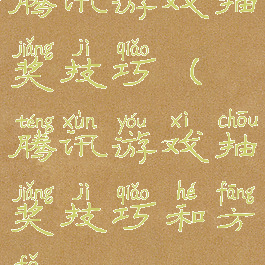 腾讯游戏抽
jiǎng jì qiǎo
奖技巧(
téng xùn yóu xì chōu
腾讯游戏抽
jiǎng jì qiǎo hé fāng
奖技巧和方
fǎ